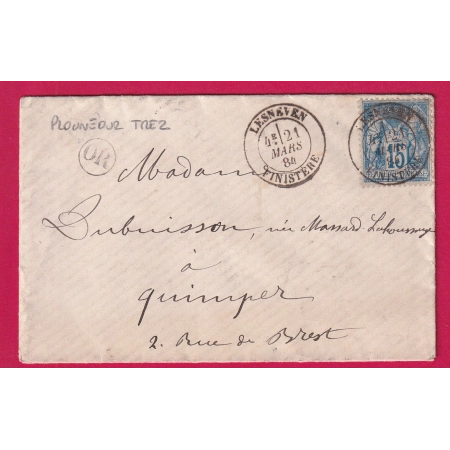 PLOUNÉOUR TREZ
OR
LESNEVEN
4E 21
MARS
84
FINISTÈRE
LESNEVEN
21
15
FINISTÈRE
Madame
Dubuisson, née Massard-Lahoussaye
à
Quimper
2. Rue de Brest